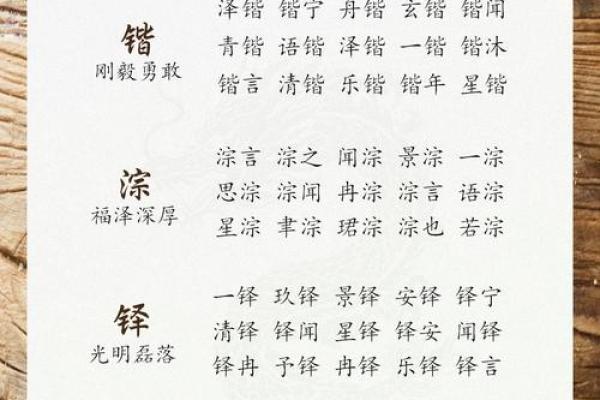 泽锴 锴宁 舟锴 玄锴 锴闻
锴
青锴 语锴 泽锴 一锴 锴沐
刚毅勇敢
锴言 清锴 乐锴 锴年 星锴
淙言 淙之 闻淙 景淙 一淙
淙
思淙 淙闻 冉淙 淙言 语淙
福泽深厚
星淙 聿淙 珺淙 淙也 若淙
一铎 玖铎 景铎 安铎 铎宁
铎
清铎 铎闻 星铎 铎安 闻铎
光明磊落
铎冉 予铎 冉铎 乐铎 铎言